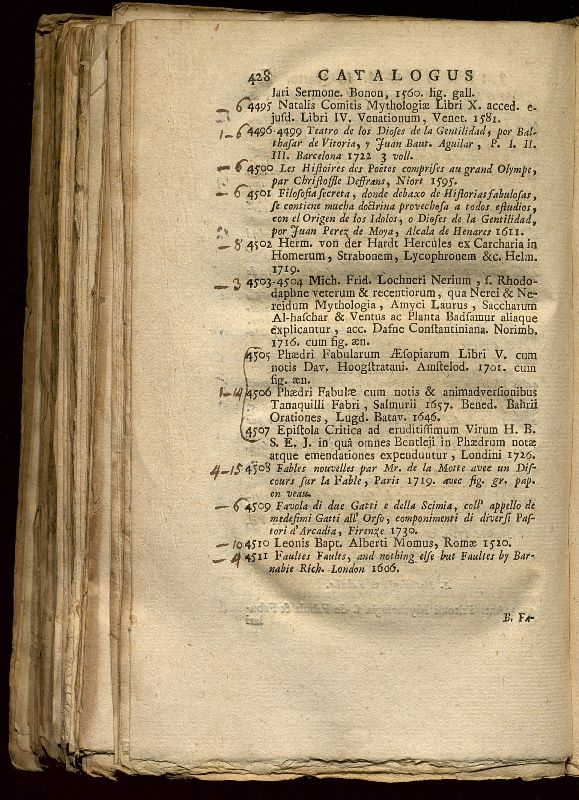 428 CATALOGUS
lari Sermone. Bonon, 1560. lig. gall.
— 6 4495 Natalis Comitis Mythologiæ Libri X. acced. e-
jusd. Libri IV. Venationum, Venet. 1581.
1—6 4496-4499 Teatro de los Dioses de la Gentilidad, por Bal-
thasar de Vitoria, y Juan Baut. Aguilar, P. I. II.
III. Barcelona 1722 3 voll.
— 6 4500 Les Histoires des Poëtes comprises au grand Olympe,
par Christoffle Deffrans, Niort 1595.
— 6 4501 Filosofia secreta, donde debaxo de Historias fabulosas,
se contiene mucha doctrina provechosa a todos estudios,
con el Origen de los Idolos, o Dioses de la Gentilidad,
por Juan Perez de Moya, Alcala de Henares 1611.
— 8 4502 Herm. von der Hardt Hercules ex Carcharia in
Homerum, Strabonem, Lycophronem &c. Helm.
1719.
— 3 4503-4504 Mich. Frid. Lochneri Nerium, s. Rhodo-
daphne veterum & recentiorum, qua Nerei & Ne-
reidum Mythologia, Amyci Laurus, Saccharum
Al-haschar & Ventus ac Planta Badsamur aliaque
explicantur, acc. Dafne Constantiniana. Norimb.
1716. cum fig. æn.
4505 Phædri Fabularum Æsopiarum Libri V. cum
notis Dav. Hoogstratani. Amstelod. 1701. cum
fig. æn.
1—14 4506 Phædri Fabulæ cum notis & animadversionibus
Tanaquilli Fabri, Salmurii 1657. Bened. Bahrii
Orationes, Lugd. Batav. 1646.
4507 Epistola Critica ad eruditissimum Virum H. B.
S. E. J. in quâ omnes Bentleji in Phædrum notæ
atque emendationes expenduntur, Londini 1726.
4—15 4508 Fables nouvelles par Mr. de la Motte avec un Dis-
cours sur la Fable, Paris 1719. avec fig. gr. pap.
en veau.
— 6 4509 Favola di due Gatti e della Scimia, coll' appello de
medesimi Gatti all' Orso, componimenti di diversi Pas-
tori d'Arcadia, Firenze 1730.
— 10 4510 Leonis Bapt. Alberti Momus, Romæ 1520.
— 4 4511 Faultes Faults, and nothing else but Faultes by Bar-
nabie Rich. London 1606.
B. Fa-